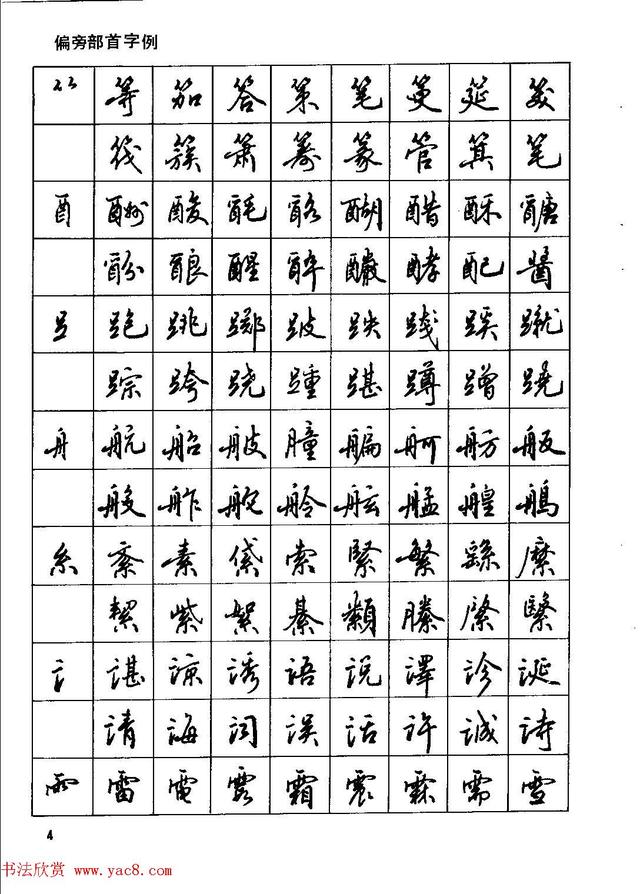 偏旁部首字例
等 笳 答 策 笔 筵
筏 簇 萧 筹 篆 管 箕 笔
酉 酬 酸 酕 酪 醐 醋 酥 醣
酚 酿 醒 醉 酽 酵 配 酱
跑 跳 踯 跛 跌 践 蹊 蹴
踪 跨 踵 踸 蹲 蹭 跷
舟 航 船 艎 艑 舸 舫 舨
艘 舴 舲 舷 艋 艎
糸 紊 素 紧 繁 繇 縻
絜 紫 絮 綦 纇 縢 繄
谌 谅 诱 语 说 译 诊 诞
请 诲 词 误 话 许 诚 诗
雨 雷 電 霜 震 霖 需 雪
4
书法欣赏 www.yac8.com